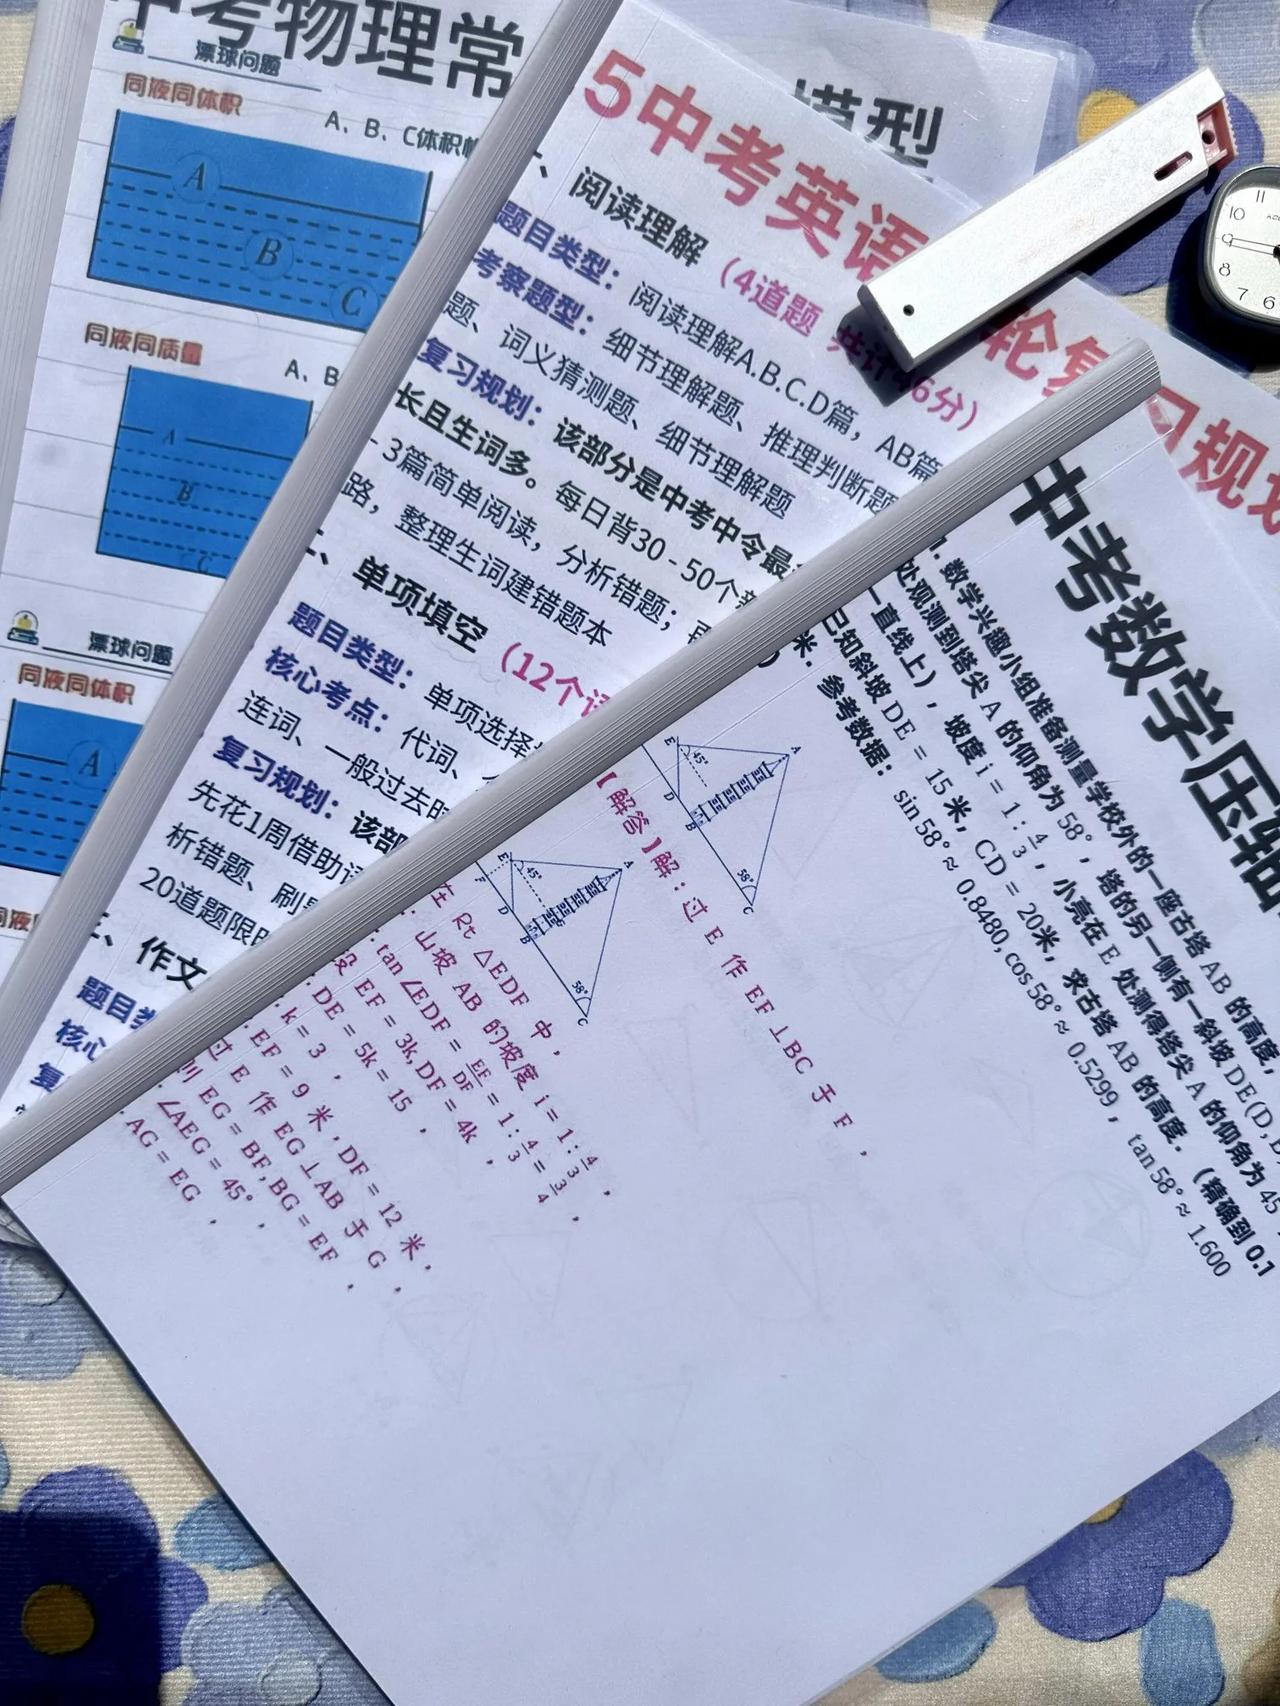 中考物理常
模型
漂球问题
同液同体积
A、B、C体积
A
B
C
同液同质量
A、B
A
B
C
漂球问题
同液同体积
A
5中考英语
轮复习规划
一、阅读理解（4道题 共计46分）
题目类型：阅读理解A.B.C.D篇，AB篇
考察题型：细节理解题、推理判断题
题、词义猜测题、细节理解题
复习规划：该部分是中考中令最
长且生词多。每日背30-50个
- 3篇简单阅读，分析错题；再
路，整理生词建错题本
二、单项填空（12个
题目类型：单项选择
核心考点：代词、
连词、一般过去时
复习规划：该部
先花1周借助
析错题、刷
20道题限时
三、作文
题目类
核心
复
中考数学压轴
1. 数学兴趣小组准备测量学校外的一座古塔 AB 的高度，
处观测到塔尖 A 的仰角为 58°，塔的另一侧有一斜坡 DE(D, B
一直线上），坡度 i = 1 : 4/3，小亮在 E 处测得塔尖 A 的仰角为 45
已知斜坡 DE = 15 米，CD = 20米，求古塔 AB 的高度．（精确到 0.1
米．参考数据：sin 58° ≈ 0.8480, cos 58° ≈ 0.5299，tan 58° ≈ 1.600
E
45°
A
D
B
58°
C
【解答】解：过 E 作 EF⊥BC 于 F，
E
45°
A
F
D
B
G
58°
C
在 Rt △EDF 中，
山坡 AB 的坡度 i = 1 : 4/3，
tan ∠EDF = EF/DF = 1 : 4/3 = 3/4，
设 EF = 3k, DF = 4k，
DE = 5k = 15，
k = 3，
EF = 9 米, DF = 12 米,
过 E 作 EG⊥AB 于 G，
则 EG = BF, BG = EF，
∠AEG = 45°，
AG = EG，
11
10
9
8
7
6